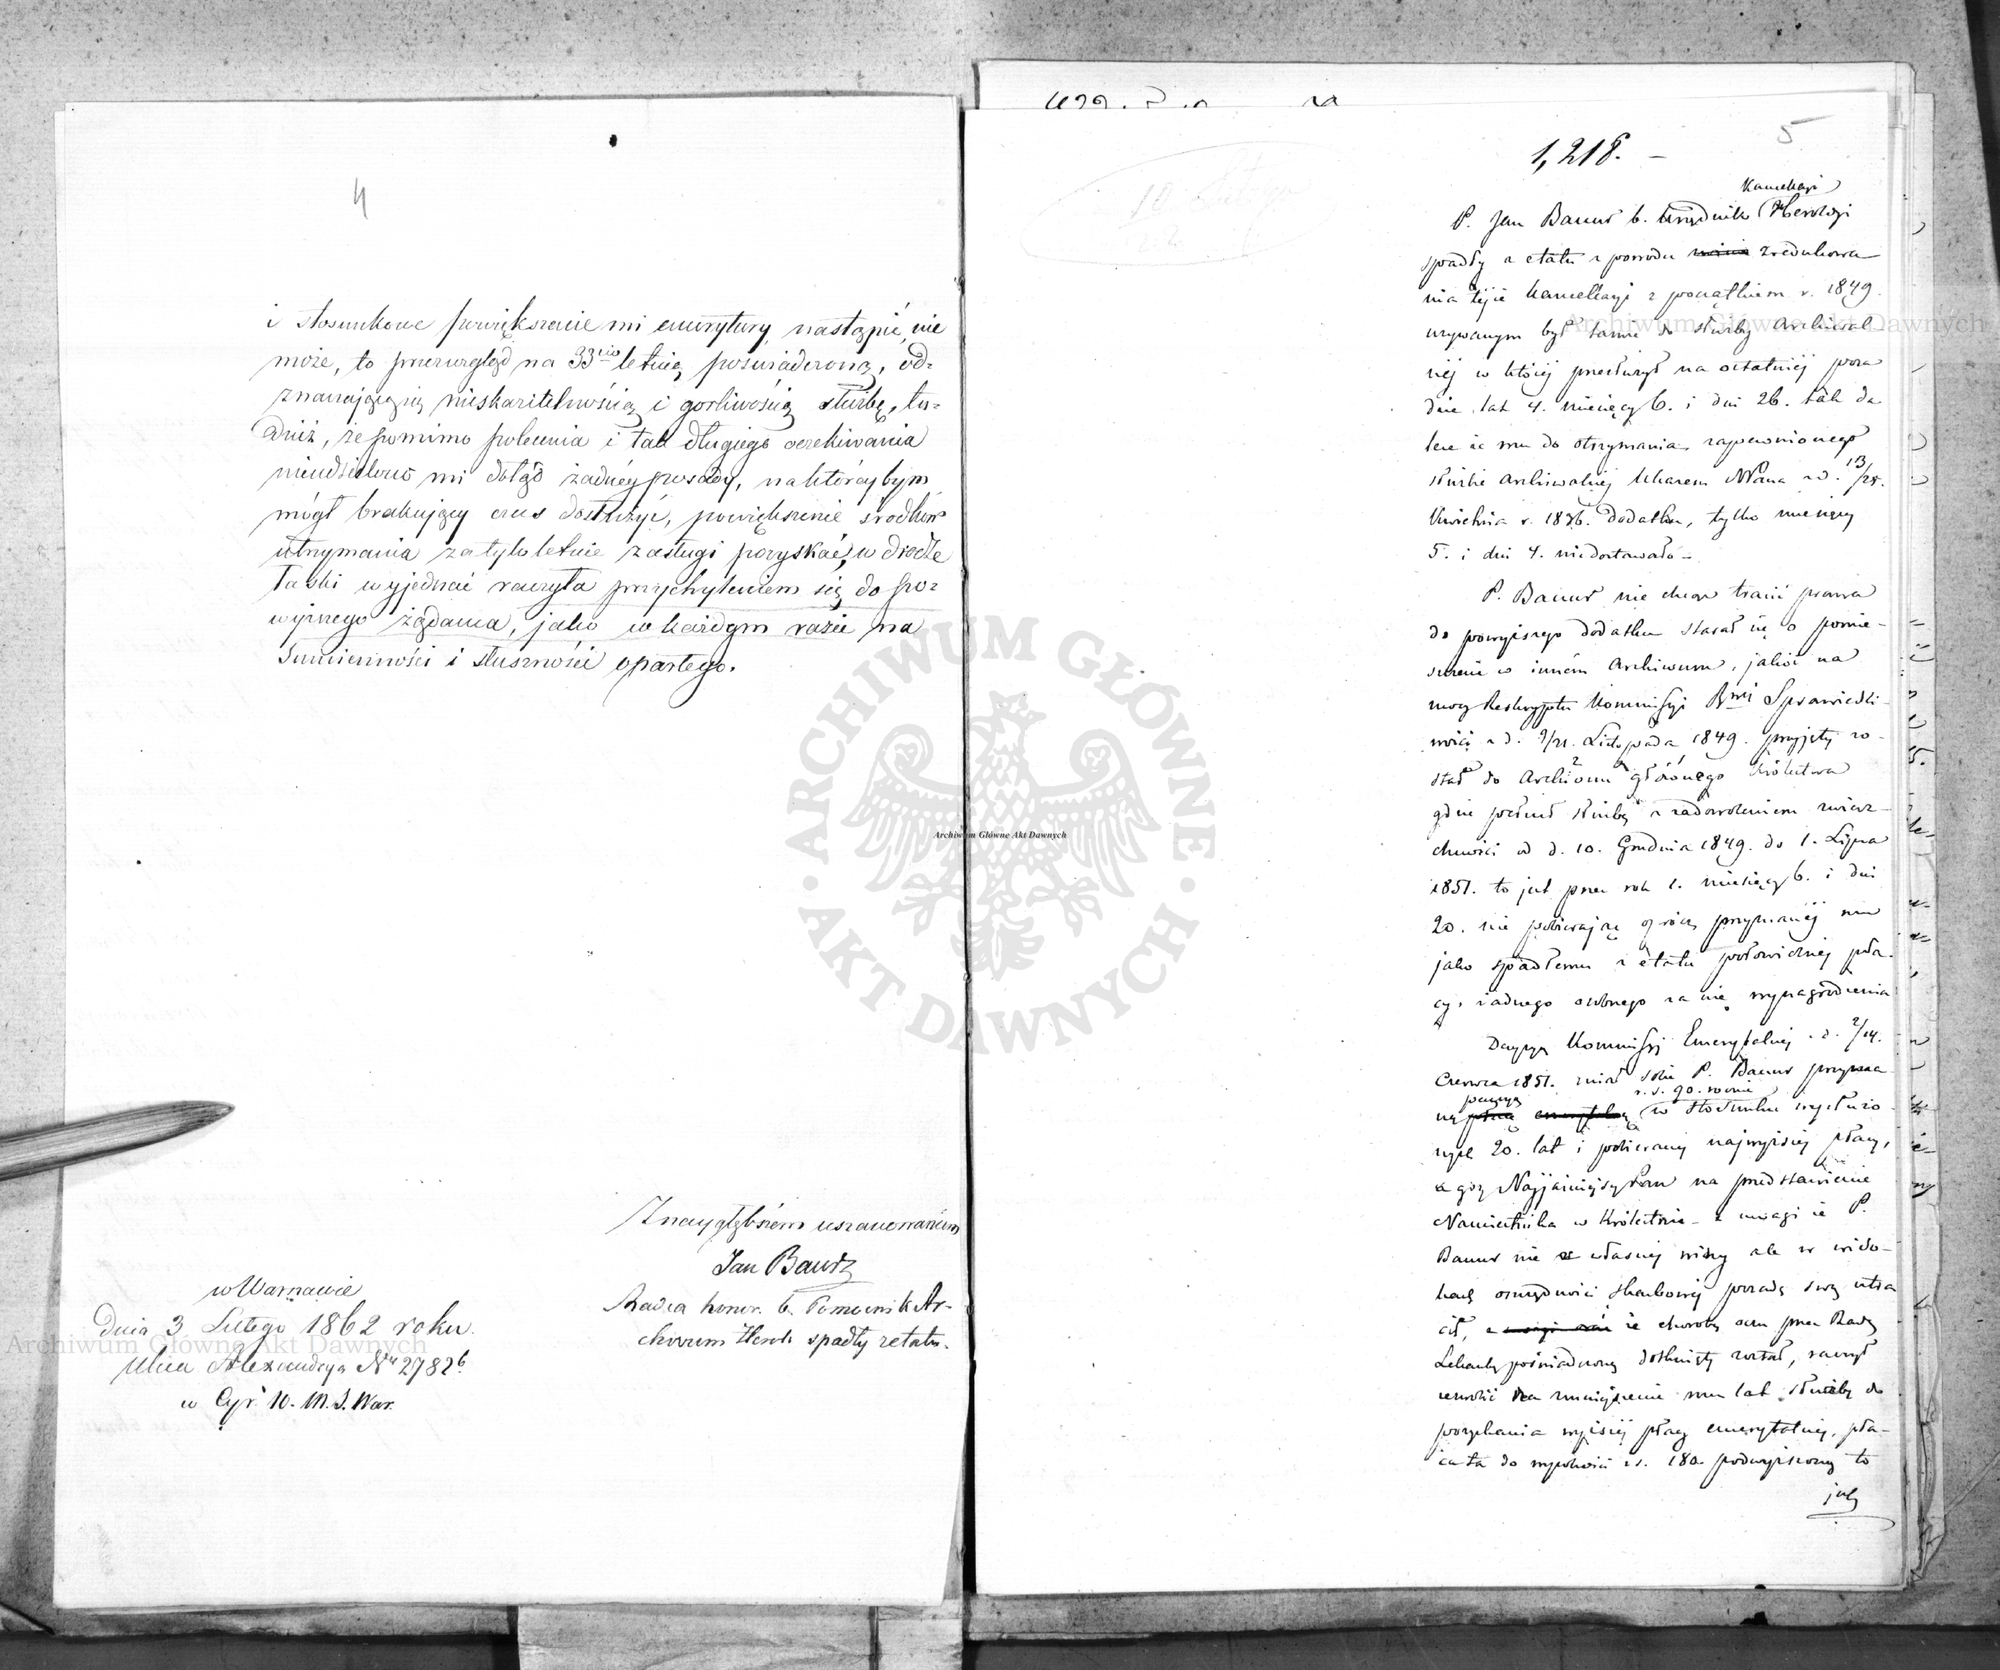 4
i stosunkowe powiększenie mi emerytury, nastąpić nie
może, to przez wzgląd na 33nio letnią poświadczoną, od-
znaczającą się nieskazitelnością i gorliwością służbę, tu-
dzież, że pomimo polecenia i tak długiego oczekiwania
nieudzielono mi dotąd żadnéj posady, na któréj bym
mógł brakujący czas dosłużyć, powiększenie środków
utrzymania za tyloletnie zasługi pozyskać, w drodze
łaski wyjednać raczyła przychyleniem się do po-
wyższego żądania, jako w każdym razie na
Sumienności i słuszności opartego.
Z najgłębszem uszanowaniem
Jan Baurz
Radca honor. b. Pomocnik Ar-
chiwum Herol: spadły z etatu.
w Warszawie
Dnia 3 Lutego 1862 roku.
Ulica Alexandrya Nr 2782 b.
w Cyr 10. M. S. War.
5
1,218. –
10 Lutego
Kancellaryi
P. Jan Baurz b. Urzędnik Heroldyi
spadły z etatu z powodu zredukowa
nia tejże Kancellaryi z początkiem r. 1849.
używanym był tamże do służby Archiwal
nej w której przesłużył na ostatniéj posa
dzie lat 4. miesięcy 6. i dni 26. tak da
lece że mu do otrzymania zapewnionego
służbie Archiwalnéj Ukazem z d. 13/25.
Kwietnia r. 1836. dodatku, tylko miesięcy
5. i dni 4. niedostawało –
P. Baurz nie chcąc tracić prawa
do powyższego dodatku starał się o pomie-
szczenie w inném Archiwum, jakoż na
mocy Reskryptu Kommissyi Rząd. Sprawiedli-
wości z d. 9/21. Listopada 1849. przyjęty zo-
stał do Archiwum głównego Królestwa
gdzie pełnił służbę z zadowoleniem zwierz-
chności od d. 10. Grudnia 1849. do 1. Lipca
1851. to jest przez rok 1. miesięcy 6. i dni
20. nie pobierając oprócz przyznanéj mu
jako spadłemu z etatu połowicznej pła-
cy, żadnego osobnego za nię wynagrodzenia
Decyzyą Kommissyi Emerytalnej z d. 2/14.
Czerwca 1851. miał sobie P. Baurz przyzna
r. s. 90. rocznie
ną pensyą w stosunku wysłużo-
nych 20. lat i pobieranej najwyższej płacy,
a gdy Najjaśniejszy Pan na przedstawienie
Namiestnika w Królestwie – z uwagi że P.
Baurz nie z własnej winy ale w wido-
kach oszczędności skarbowej posadę swą utra
cił, że chorobą oczu przez Radę
Lekarską poświadczoną dotknięty został, raczył
zezwolić na zmniejszenie mu lat służby do
pozyskania wyższej płacy emerytalnej, pła-
ca ta do wysokości rs. 180. podwyższoną to
jest
Archiwum Główne Akt Dawnych
Archiwum Główne Akt Dawnych
Archiwum Główne Akt Dawnych
ARCHIWUM GŁÓWNE · AKT DAWNYCH ·